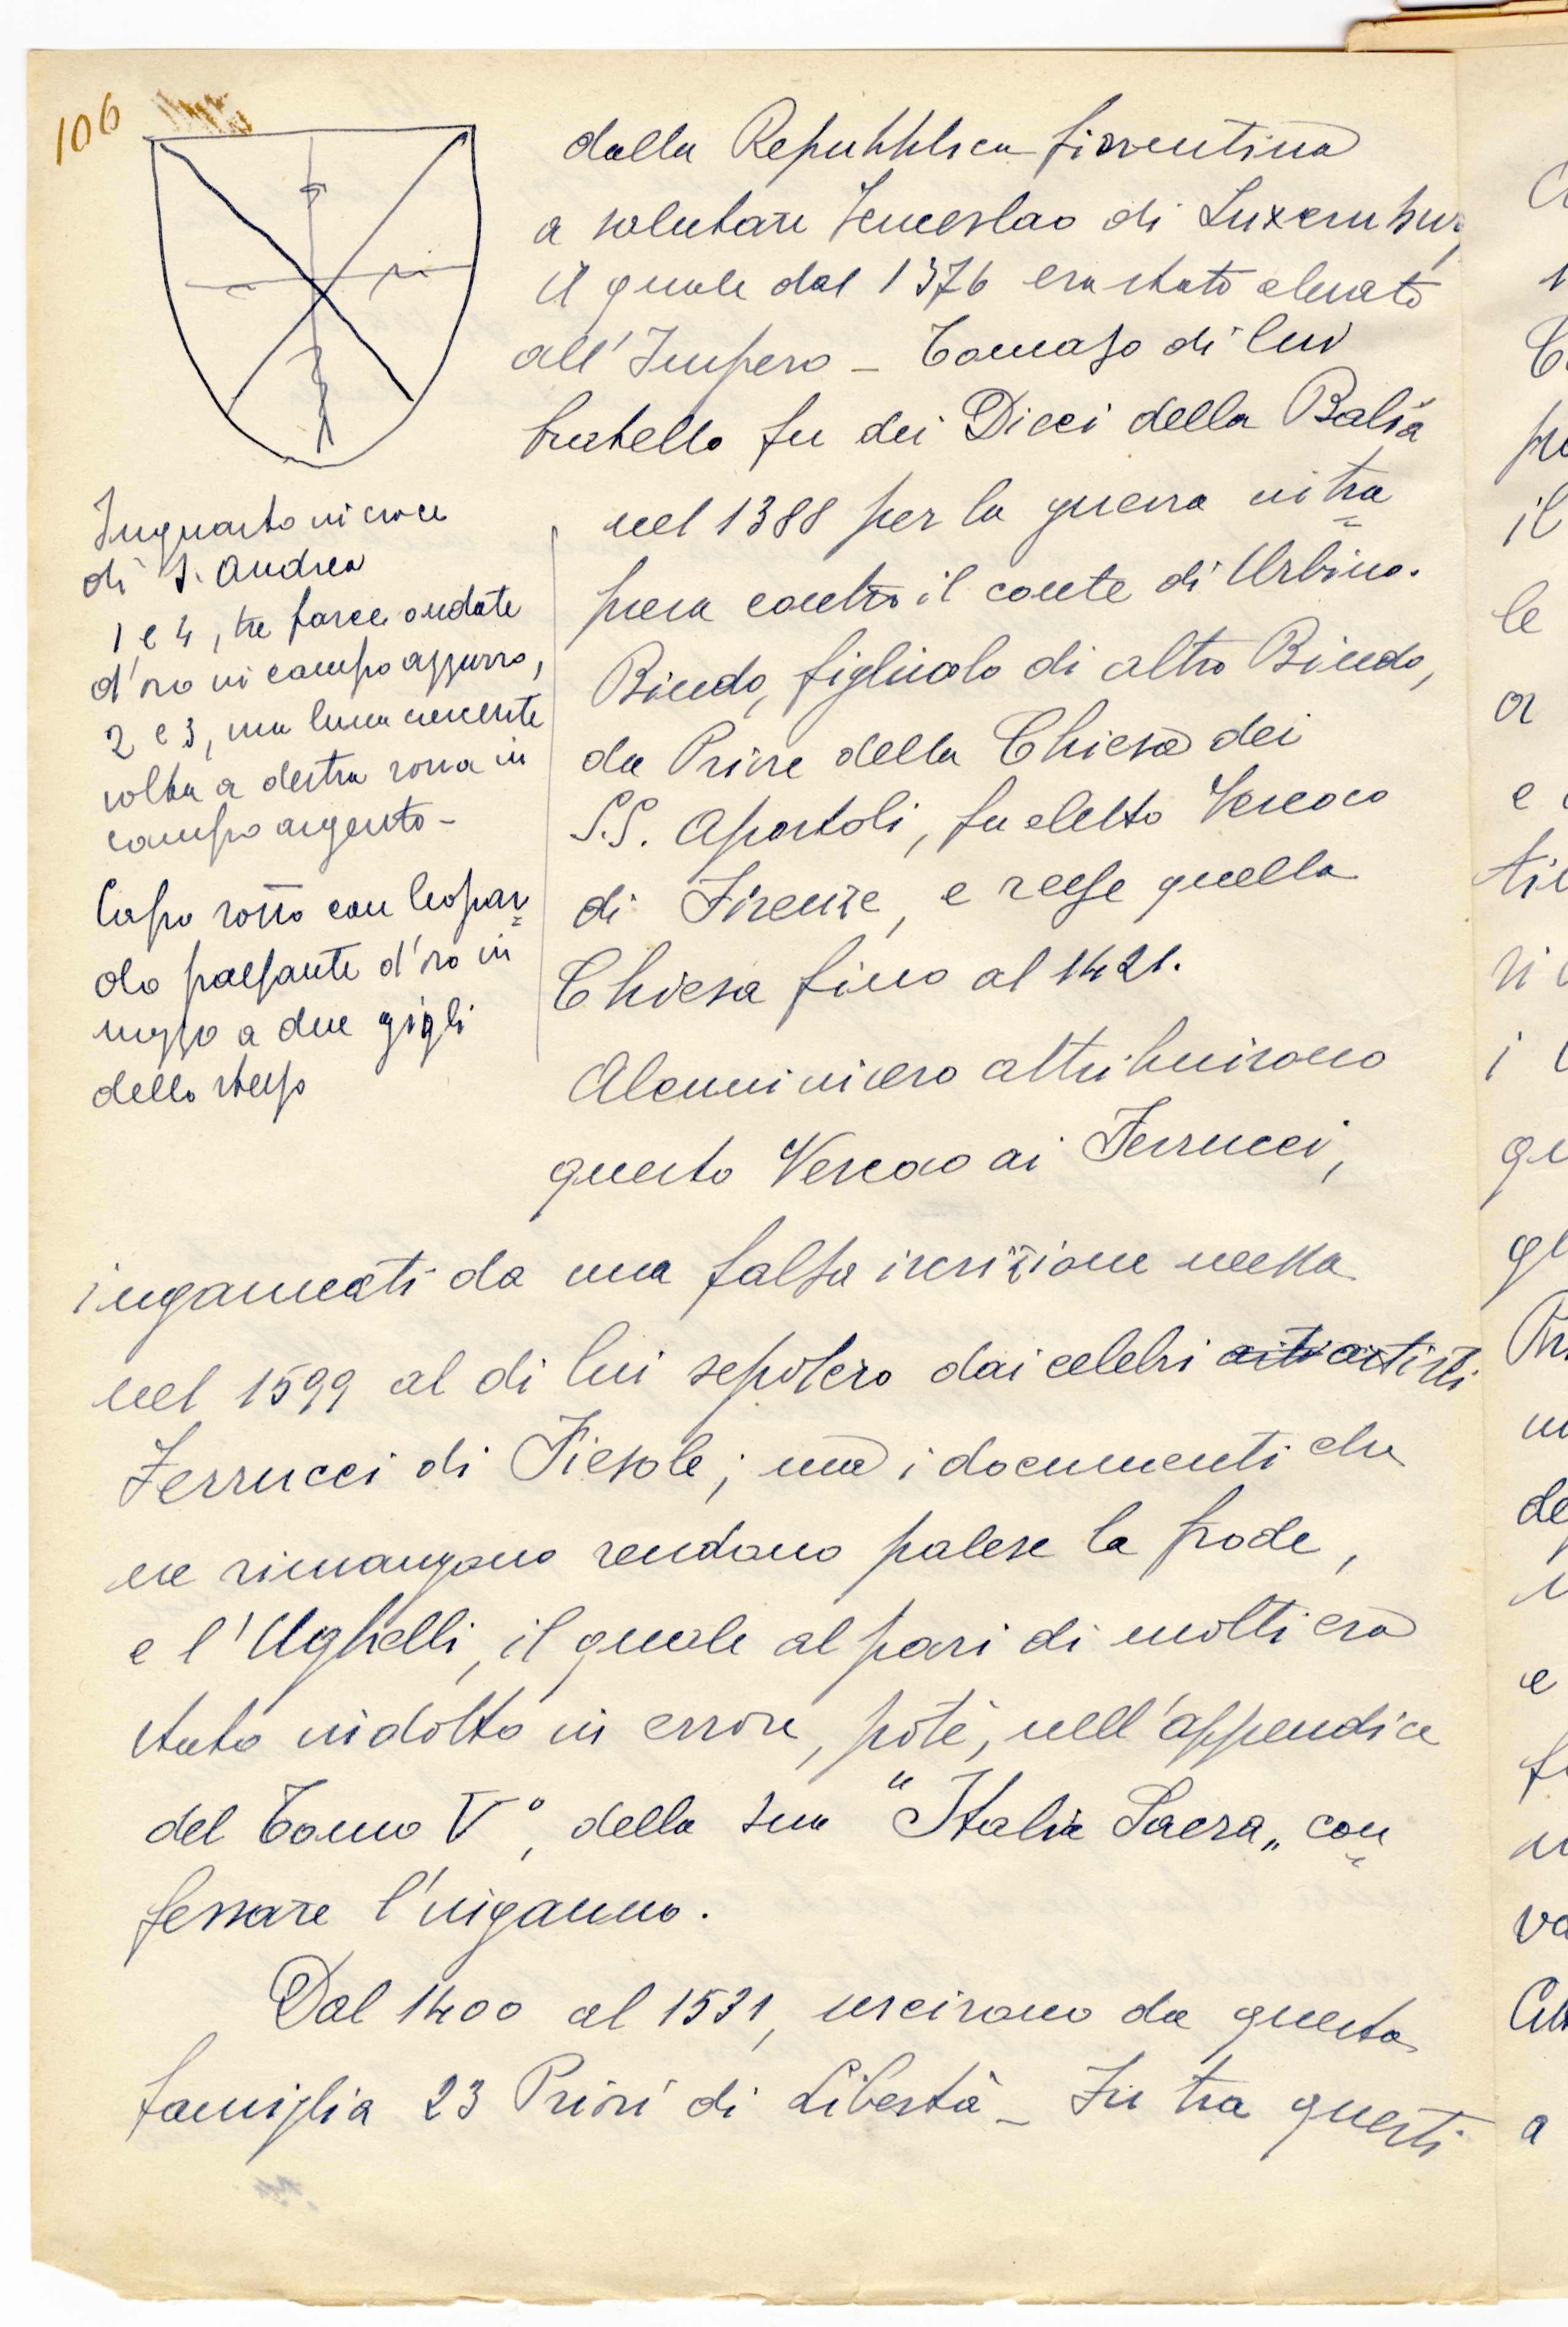 106
dalla Repubblica fiorentina
a salutare Venceslao di Luxembur
il quale dal 1376 era stato elevato
all'Impero - Tomaso di lui
fratello fu dei Dieci della Balìa
nel 1388 per la guerra intra
presa contro il conte di Urbino.
Bindo, figliuolo di altro Bindo,
da Priore della Chiesa dei
S.S. Apostoli, fu eletto Vescovo
di Firenze, e resse quella
Chiesa fino al 1421.
Alcuni invero attribuirono
questo Vescovo ai Ferrucci,
Inquarto in croce
di S. Andrea
1 e 4, tre fasce ondate
d'oro in campo azzurro,
2 e 3, una luna crescente
volta a destra rossa in
campo argento -
Capo rosso con leopar
do passante d'oro in
mezzo a due gigli
dello stesso
ingannati da una falsa iscrizione messa
nel 1599 al di lui sepolcro dai celebri artisti
Ferrucci di Fiesole; ma i documenti che
ne rimangono rendono palese la frode,
e l'Ughelli, il quale al pari di molti era
stato indotto in errore, potè, nell'appendice
del Tomo V°, della sua "Italia Sacra„ con
fessare l'inganno.
Dal 1400 al 1531, uscirono da questa
famiglia 23 Priori di Libertà - Fu tra questi